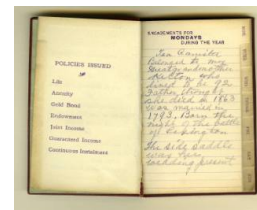 POLICIES ISSUED
Life
Annuity
Gold Bond
Endowment
Joint Income
Guaranteed Income
Continuous Instalment
ENGAGEMENTS FOR
MONDAYS
DURING THE YEAR
belonged to my
Great
who
lived to be 92
Father
she died in 1863
was married in
1793. Born the
night of the battle
of Lexington
The side saddle
was her
wedding present